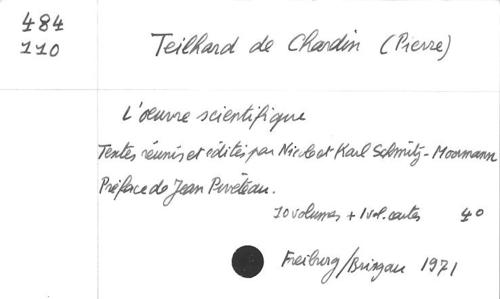 484
110
Teilhard de Chardin (Pierre)
L'oeuvre scientifique
Textes réunis et édités par Nicole et Karl Schmitz-Moormann
Préface de Jean Piveteau.
10 volumes + 1 vol. cartes 4°
Freiburg/Brisgau 1971